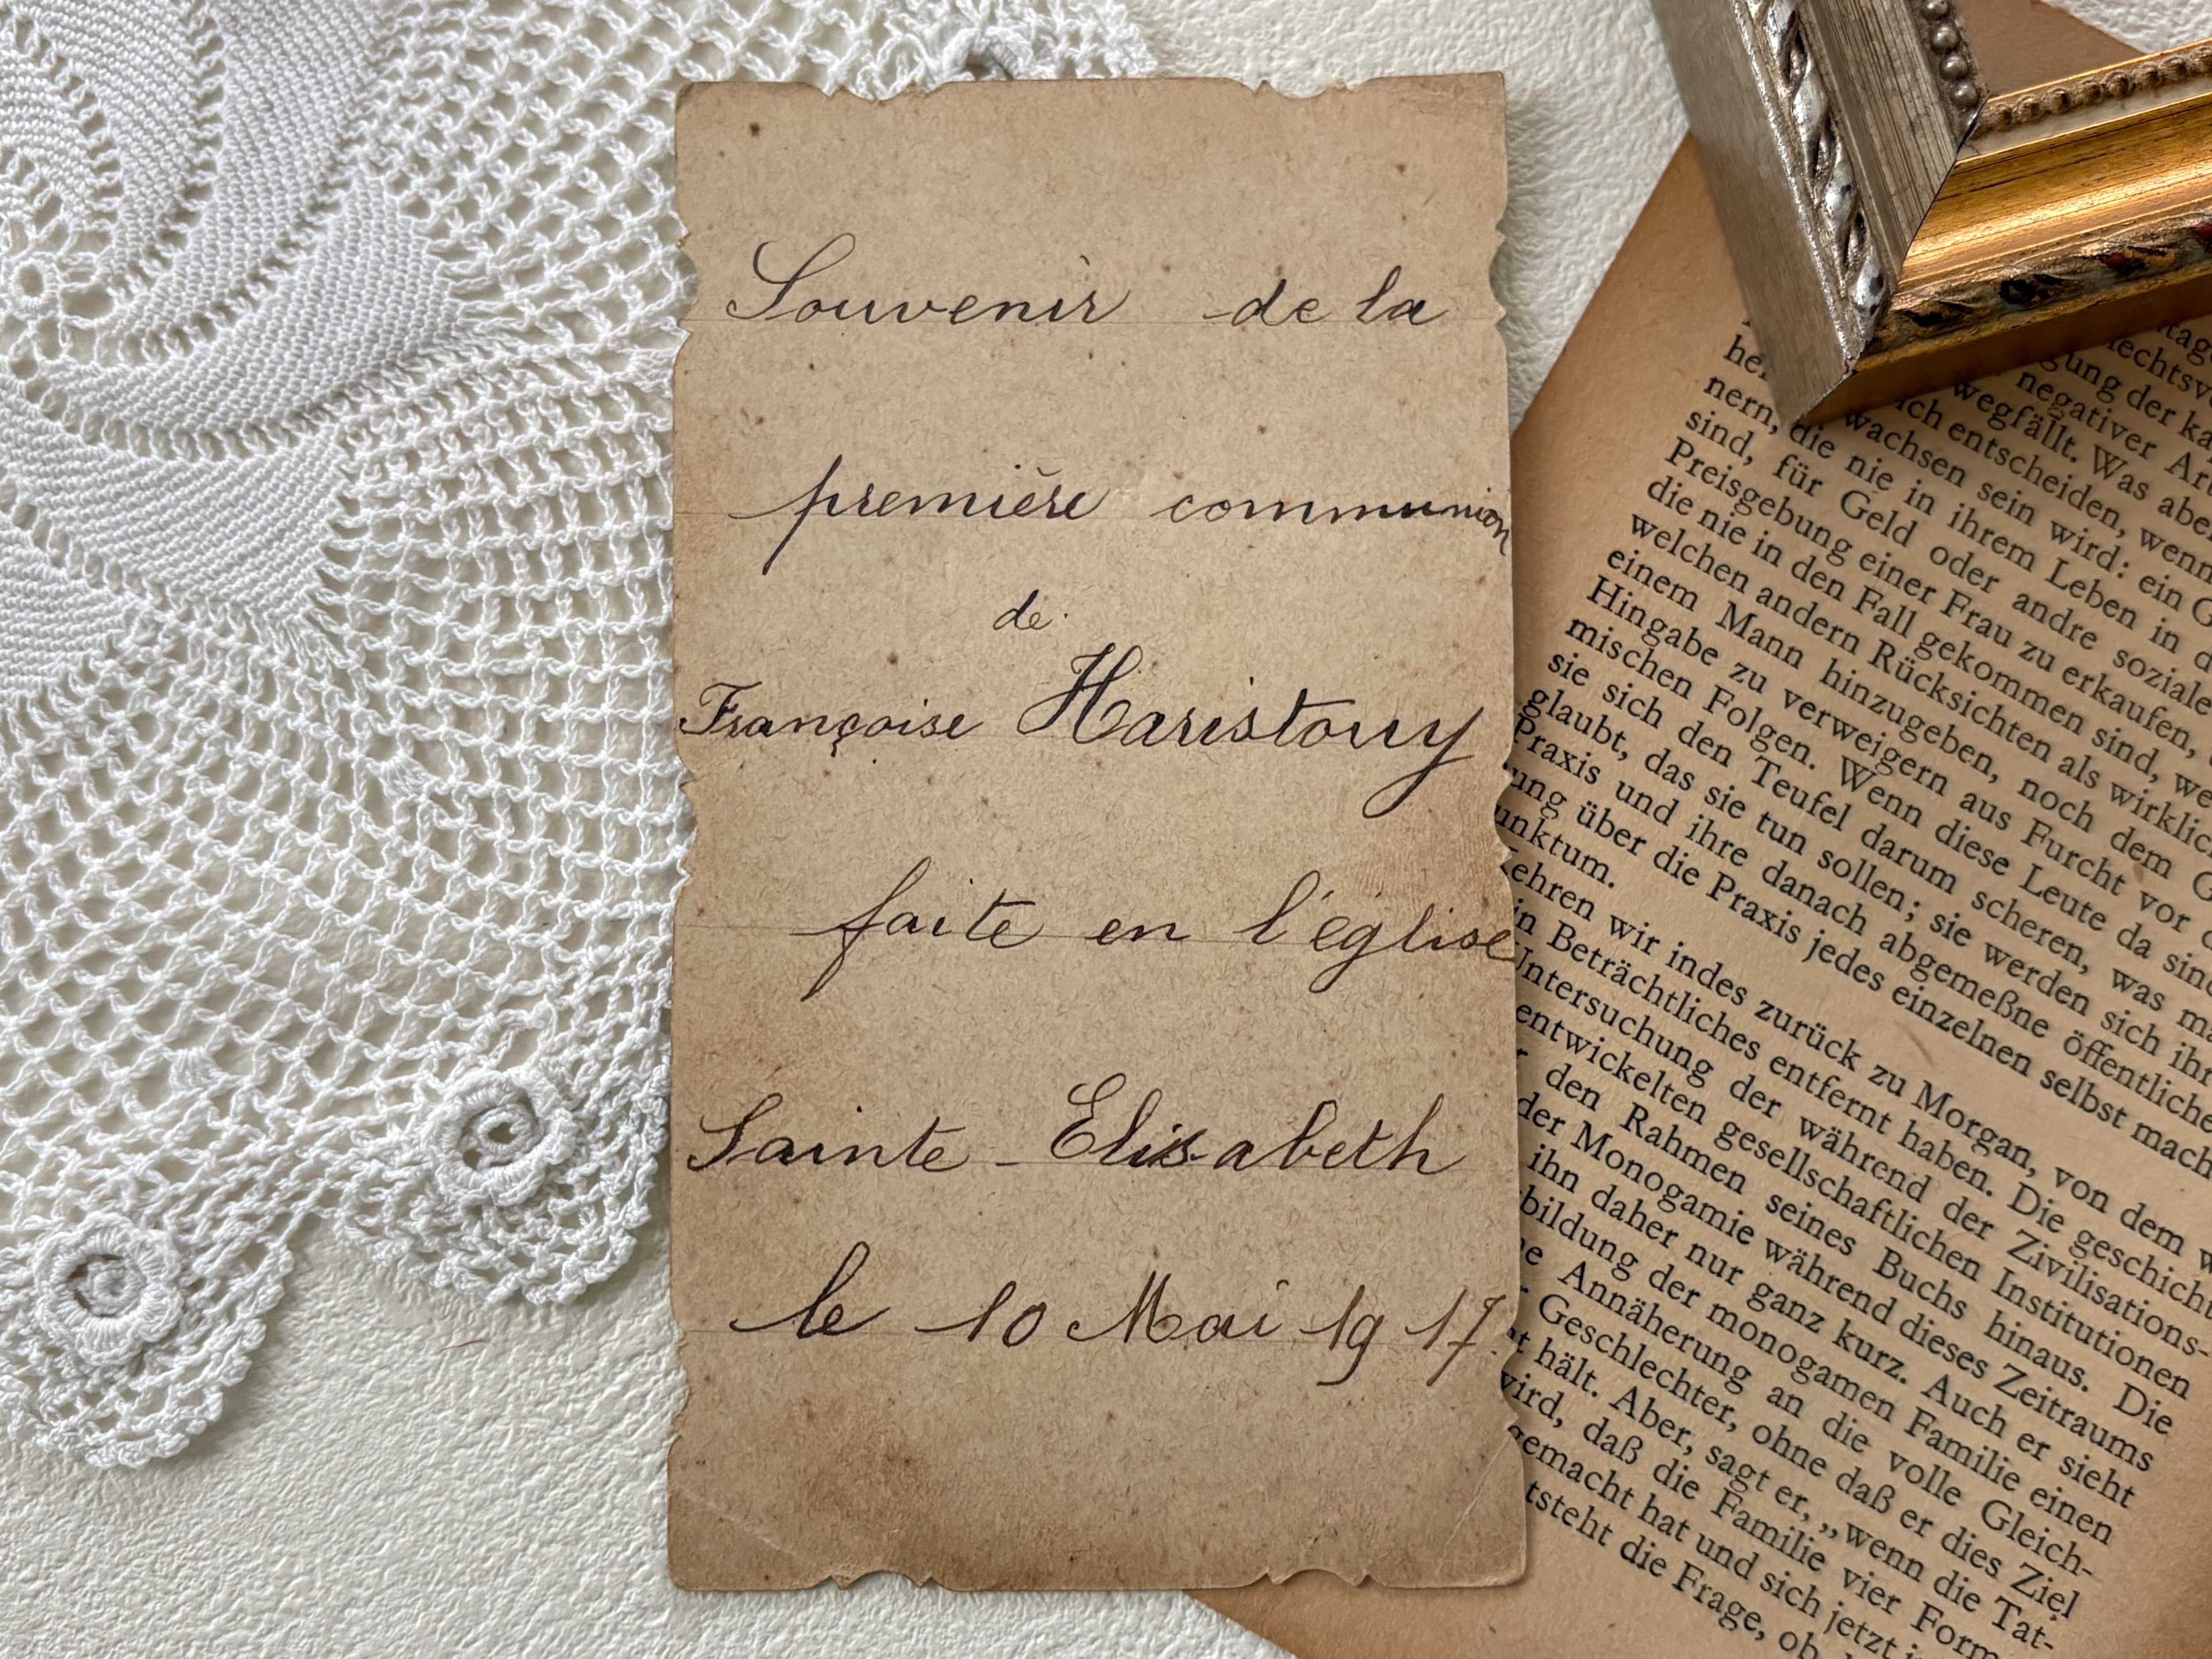 Souvenir de la
première communion
de
Françoise Haristouy
faite en l'église
Sainte-Elisabeth
le 10 Mai 1917.
ntage
lechtsv
gung der ka
negativer Art
wegfällt. Was aber
ich entscheiden, wenn
wachsen sein wird: ein G
nern, die nie in ihrem Leben in d
sind, für Geld oder andre soziale
Preisgebung einer Frau zu erkaufen,
die nie in den Fall gekommen sind, we
welchen andern Rücksichten als wirklich
einem Mann hinzugeben, noch dem G
Hingabe zu verweigern aus Furcht vor d
mischen Folgen. Wenn diese Leute da sind
sie sich den Teufel darum scheren, was ma
glaubt, das sie tun sollen; sie werden sich ihr
Praxis und ihre danach abgemeßne öffentliche
ung über die Praxis jedes einzelnen selbst mach
unktum.
Kehren wir indes zurück zu Morgan, von dem w
in Beträchtliches entfernt haben. Die geschicht
Untersuchung der während der Zivilisations-
entwickelten gesellschaftlichen Institutionen
r den Rahmen seines Buchs hinaus. Die
der Monogamie während dieses Zeitraums
ihn daher nur ganz kurz. Auch er sieht
bildung der monogamen Familie einen
ne Annäherung an die volle Gleich-
Geschlechter, ohne daß er dies Ziel
t hält. Aber, sagt er, „wenn die Tat-
wird, daß die Familie vier Form
gemacht hat und sich jetzt i
tsteht die Frage, ob